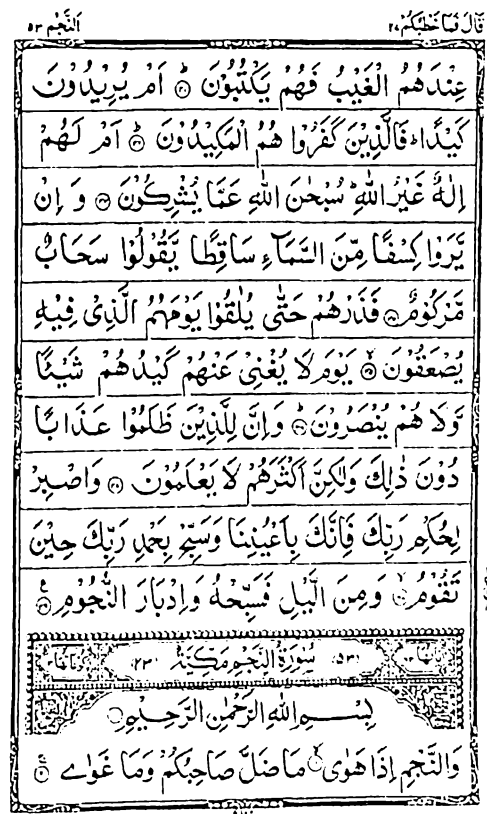 قَالَ فَمَا خَطْبُكُمْ ٢٧ اَلنَّجْمِ ٥٣
عِنْدَهُمُ الْغَيْبُ فَهُمْ يَكْتُبُوْنَ ؕ‏﴿۴۱﴾ اَمْ يُرِيْدُوْنَ
كَيْدًا ؕ فَالَّذِيْنَ كَفَرُوْا هُمُ الْمَكِيْدُوْنَ ؕ‏﴿۴۲﴾ اَمْ لَهُمْ
اِلٰهٌ غَيْرُ اللّٰهِ ؕ سُبْحٰنَ اللّٰهِ عَمَّا يُشْرِكُوْنَ ﴿۴۳﴾ وَ اِنْ
يَّرَوْا كِسْفًا مِّنَ السَّمَآءِ سَاقِطًا يَّقُوْلُوْا سَحَابٌ
مَّرْكُوْمٌ ﴿۴۴﴾ فَذَرْهُمْ حَتّٰى يُلٰقُوْا يَوْمَهُمُ الَّذِىْ فِيْهِ
يُصْعَقُوْنَ ۙ‏﴿۴۵﴾ يَوْمَ لَا يُغْنِىْ عَنْهُمْ كَيْدُهُمْ شَيْئًا
وَّلَا هُمْ يُنْصَرُوْنَ ؕ‏﴿۴۶﴾ وَاِنَّ لِلَّذِيْنَ ظَلَمُوْا عَذَابًا
دُوْنَ ذٰلِكَ وَلٰكِنَّ اَكْثَرَهُمْ لَا يَعْلَمُوْنَ ﴿۴۷﴾ وَاصْبِرْ
لِحُكْمِ رَبِّكَ فَاِنَّكَ بِاَعْيُنِنَا وَسَبِّحْ بِحَمْدِ رَبِّكَ حِيْنَ
تَقُوْمُ ۙ‏﴿۴۸﴾ وَمِنَ الَّيْلِ فَسَبِّحْهُ وَاِدْبَارَ النُّجُوْمِ ﴿۴۹﴾
(٥٣) سُوْرَةُ النَّجْمِ مَكِّيَّةٌ (٢٣)
بِسْمِ اللّٰهِ الرَّحْمٰنِ الرَّحِيْمِ
وَالنَّجْمِ اِذَا هَوٰى ۙ‏﴿۱﴾ مَا ضَلَّ صَاحِبُكُمْ وَمَا غَوٰى ۚ‏﴿۲﴾